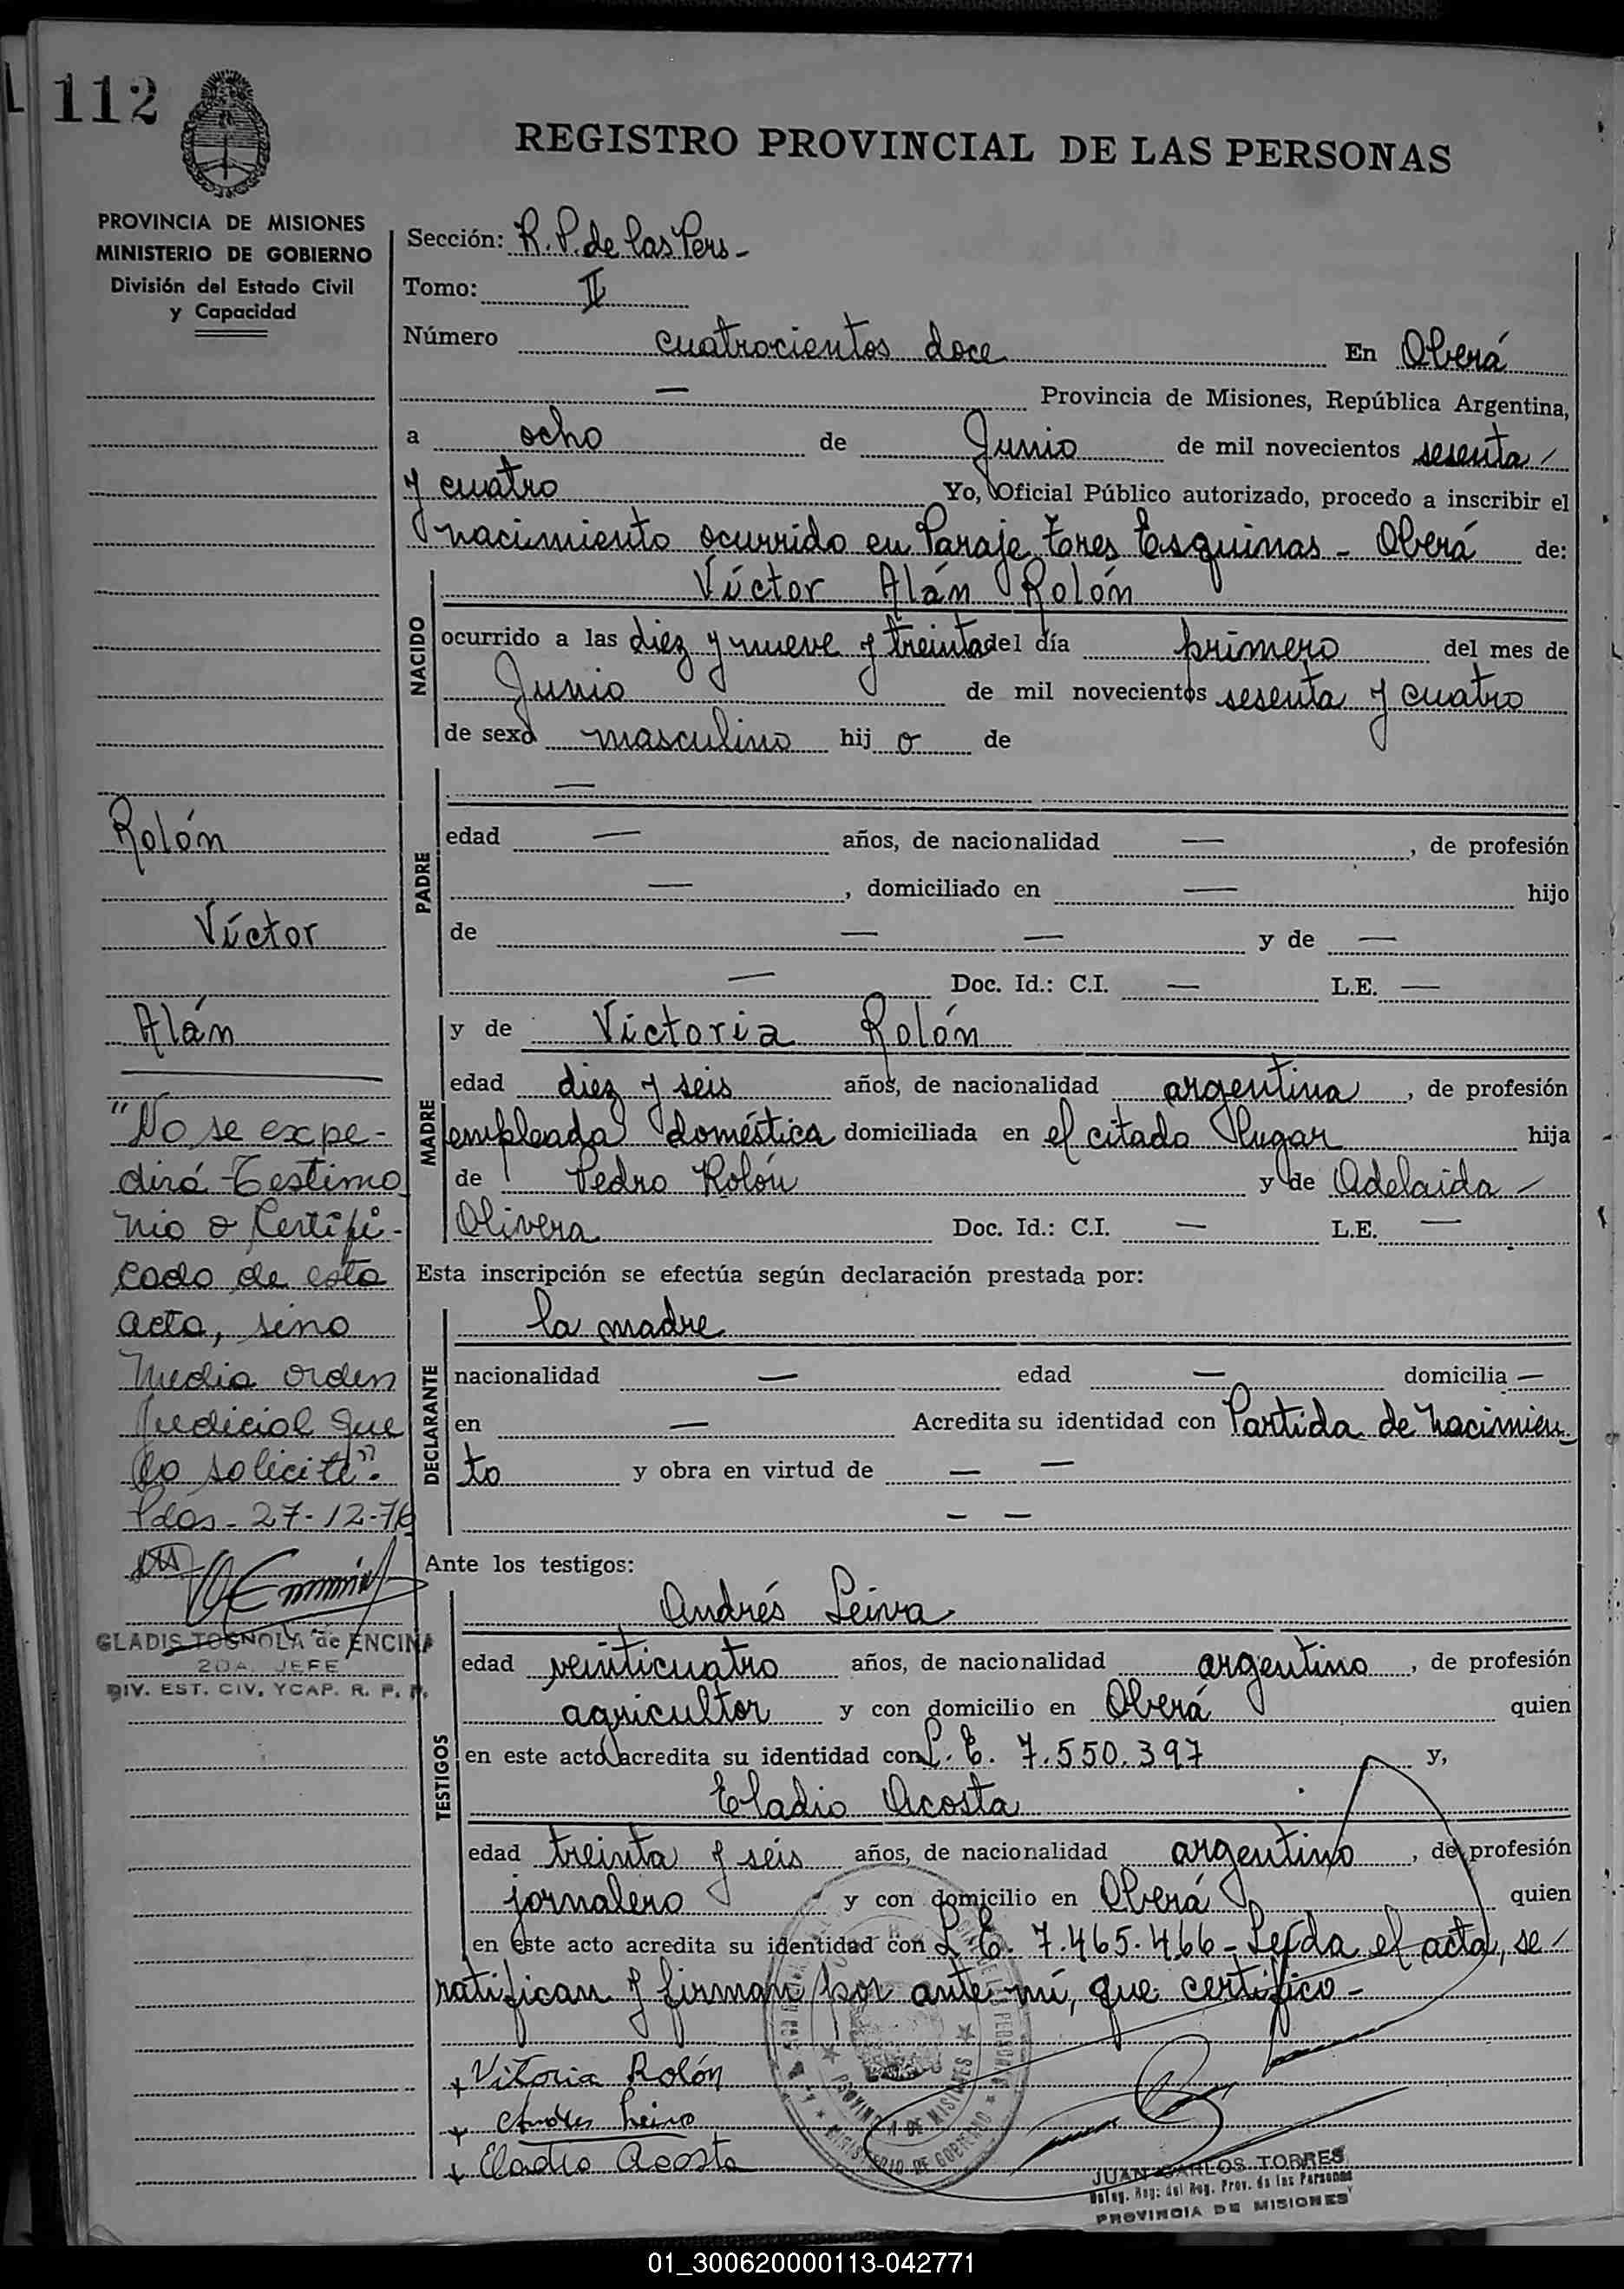 112
REGISTRO PROVINCIAL DE LAS PERSONAS
PROVINCIA DE MISIONES
MINISTERIO DE GOBIERNO
División del Estado Civil
y Capacidad
Sección: R. P. de las Pers -
Tomo: II
Número cuatrocientos doce En Oberá
— Provincia de Misiones, República Argentina,
a ocho de Junio de mil novecientos sesenta /
y cuatro Yo, Oficial Público autorizado, procedo a inscribir el
nacimiento ocurrido en Paraje tres Esquinas - Oberá de:
NACIDO
Víctor Alán Rolón
ocurrido a las diez y nueve y treinta del día primero del mes de
Junio de mil novecientos sesenta y cuatro
de sexo masculino hij o de
PADRE
—
edad — años, de nacionalidad — , de profesión
— , domiciliado en — hijo
de — — y de —
— Doc. Id.: C.I. — L.E. —
MADRE
y de Victoria Rolón
edad diez y seis años, de nacionalidad argentina , de profesión
empleada doméstica domiciliada en el citado lugar hija
de Pedro Rolón y de Adelaida /
Olivera Doc. Id.: C.I. — L.E. —
Esta inscripción se efectúa según declaración prestada por:
DECLARANTE
la madre
nacionalidad — edad — domicilia —
en — Acredita su identidad con Partida de nacimien
to y obra en virtud de — —
— —
Ante los testigos:
TESTIGOS
Andrés Leiva
edad veinticuatro años, de nacionalidad argentino , de profesión
agricultor y con domicilio en Oberá quien
en este acto acredita su identidad con L. E. 7.550.397 y,
Eladio Acosta
edad treinta y seis años, de nacionalidad argentino , de profesión
jornalero y con domicilio en Oberá quien
en este acto acredita su identidad con L. E. 7.465.466 - Leída el acta, se /
ratifican y firman por ante mí, que certifico -
+ Vitoria Rolón
+ Andres Leiva
+ Eladio Acosta
JUAN CARLOS TORRES
Deleg. Reg: del Reg. Prov. de las Personas
PROVINCIA DE MISIONES
PROVINCIA DE MISIONES
MINISTERIO DE GOBIERNO
Rolón
Víctor
Alán
"No se expe-
dirá Testimo
nio o Certifi-
cado de esta
acta, sino
media orden
Judicial que
lo solicite".
Pdas - 27-12-76
GLADIS TOGNOLA de ENCINA
2DA. JEFE
DIV. EST. CIV. YCAP. R. P. P.
01_300620000113-042771